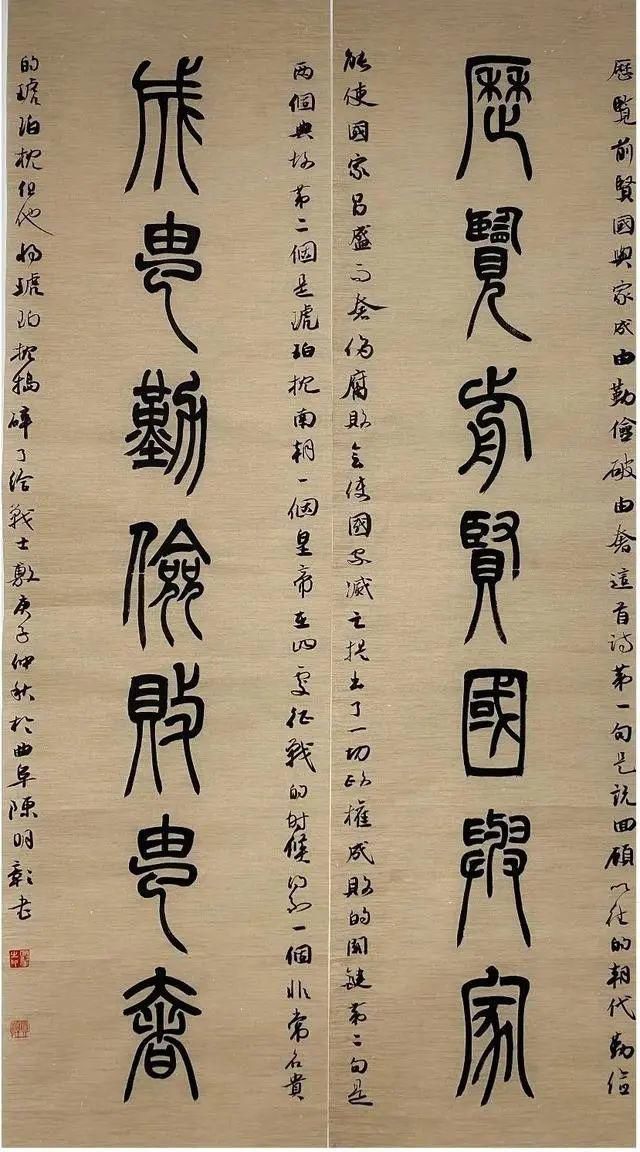 歷覽前賢國與家成由勤儉破由奢這首詩第一句是說回顧以往的朝代勤儉
歷覽前賢國與家
能使國家昌盛而奢侈腐敗會使國家滅亡提出了一切政權成敗的関鍵第二句是
两個典故第二個是琥珀枕南朝一個皇帝在四處征戰的時候得到一個非常名貴
成由勤儉敗由奢
的琥珀枕但他將琥珀枕搗碎了給戰士敷庚子仲秋於曲阜陳明彰書